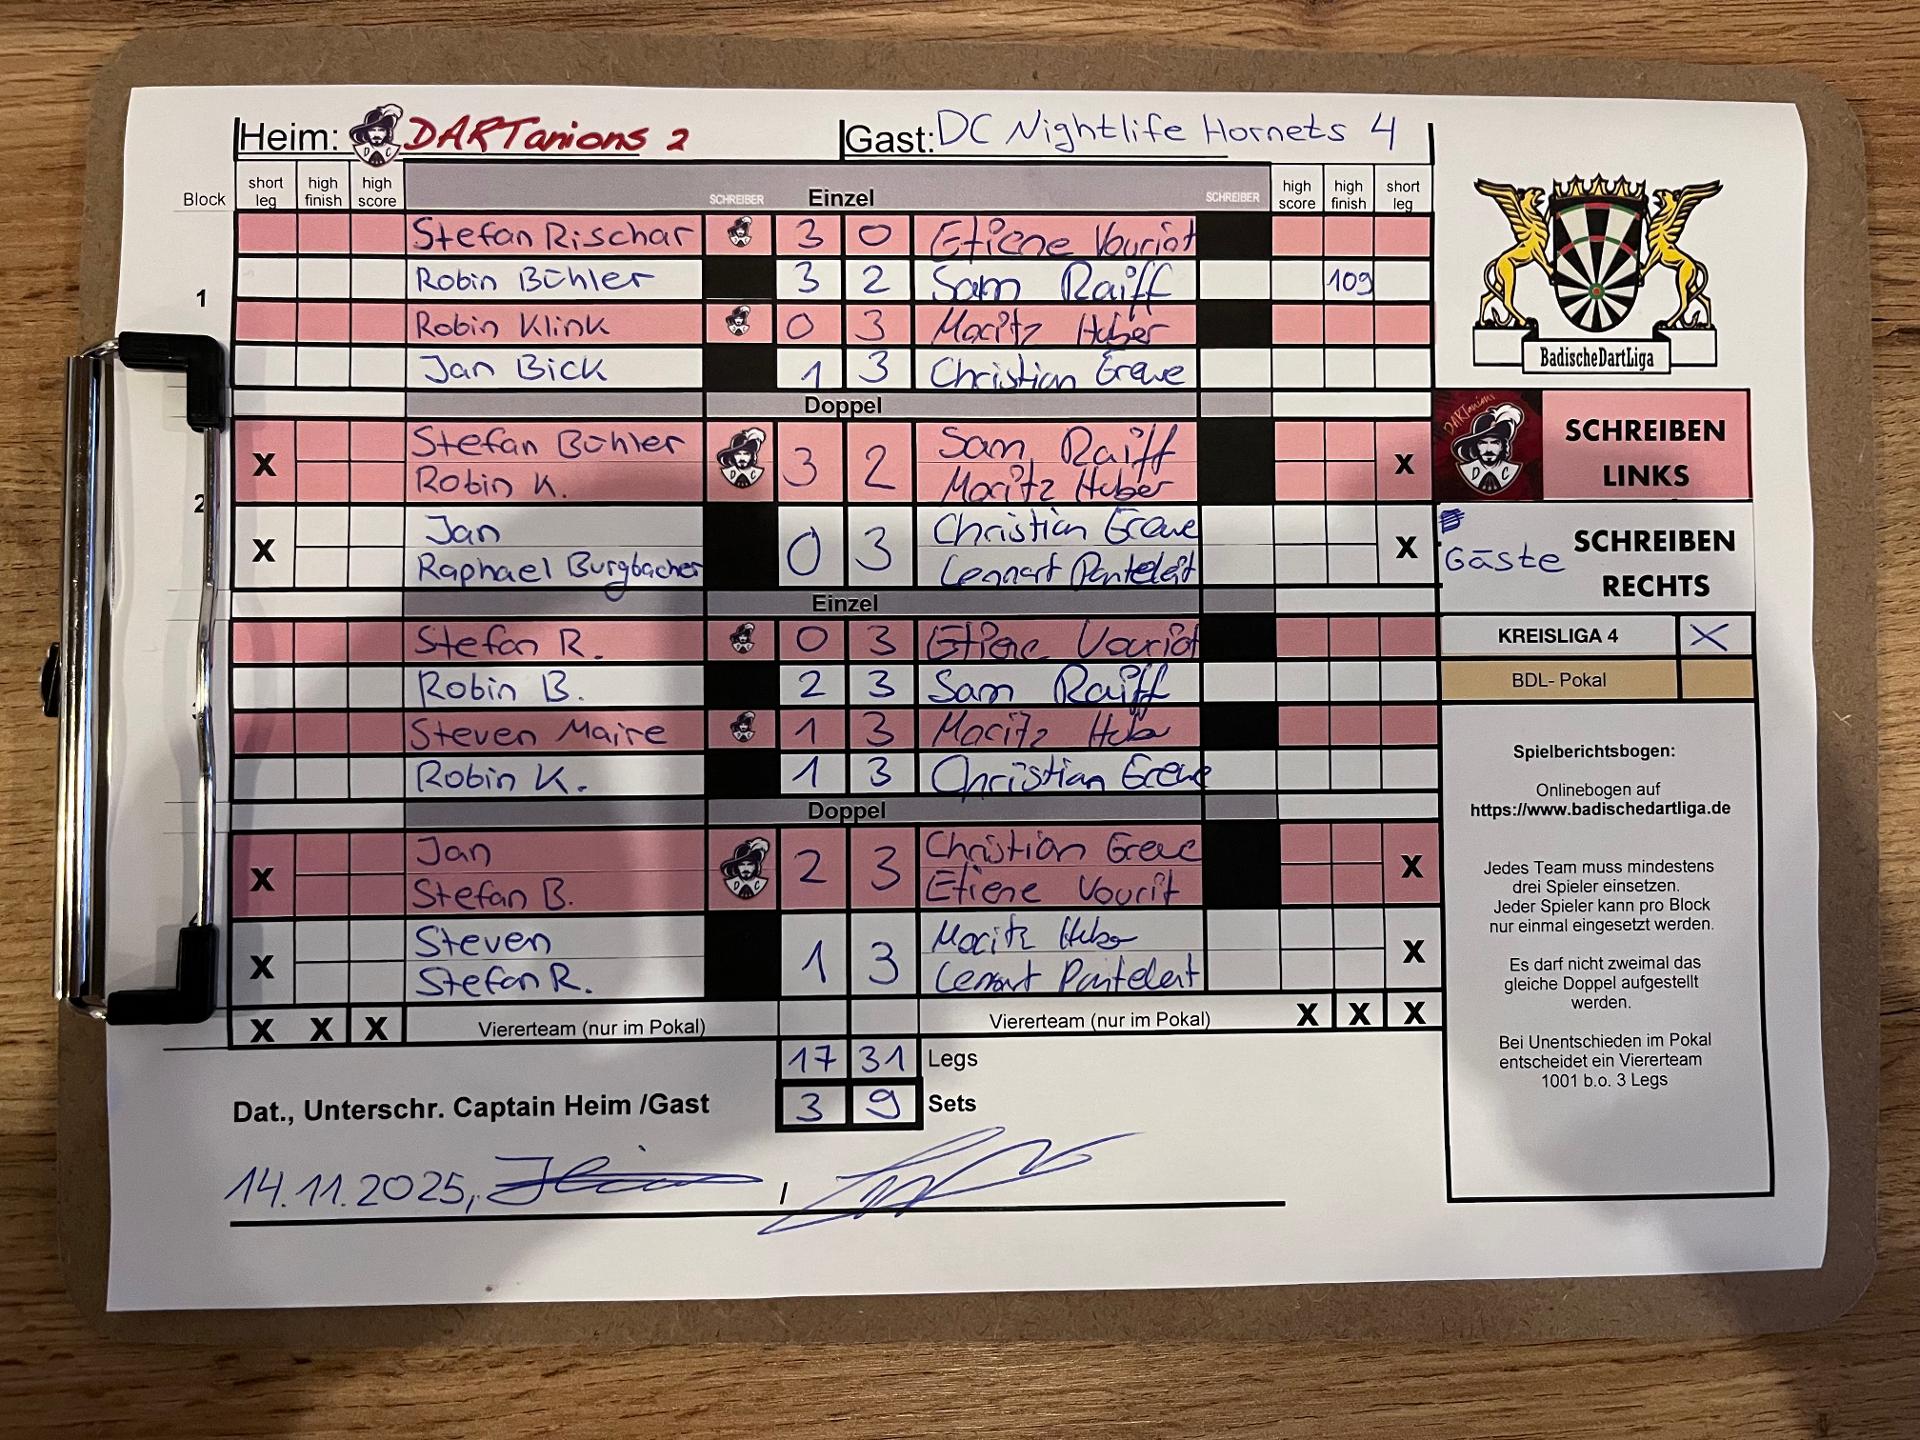 Heim: DARTanions 2 Gast: DC Nightlife Hornets 4
Block short leg high finish high score SCHREIBER Einzel SCHREIBER high score high finish short leg
Stefan Rischar 3 0 Etiene Vouriot
1 Robin Bühler 3 2 Sam Raiff 109
Robin Klink 0 3 Moritz Huber
Jan Bick 1 3 Christian Greve
Doppel
X Stefan Bühler 3 2 Sam Raiff X
Robin K. Moritz Huber
2
X Jan 0 3 Christian Greve X
Raphael Burgbacher Lennart Panteleit
Einzel
Stefan R. 0 3 Etiene Vouriot
Robin B. 2 3 Sam Raiff
3 Steven Maire 1 3 Moritz Huber
Robin K. 1 3 Christian Greve
Doppel
X Jan 2 3 Christian Greve X
Stefan B. Etiene Vourit
X Steven 1 3 Moritz Huber X
Stefan R. Lennart Panteleit
X X X Viererteam (nur im Pokal) Viererteam (nur im Pokal) X X X
17 31 Legs
Dat., Unterschr. Captain Heim /Gast 3 9 Sets
14.11.2025, /
BadischeDartLiga
DARTanions
D C
SCHREIBEN
LINKS
Gäste SCHREIBEN
RECHTS
KREISLIGA 4 X
BDL- Pokal
Spielberichtsbogen:
Onlinebogen auf
https://www.badischedartliga.de
Jedes Team muss mindestens
drei Spieler einsetzen.
Jeder Spieler kann pro Block
nur einmal eingesetzt werden.
Es darf nicht zweimal das
gleiche Doppel aufgestellt
werden.
Bei Unentschieden im Pokal
entscheidet ein Viererteam
1001 b.o. 3 Legs